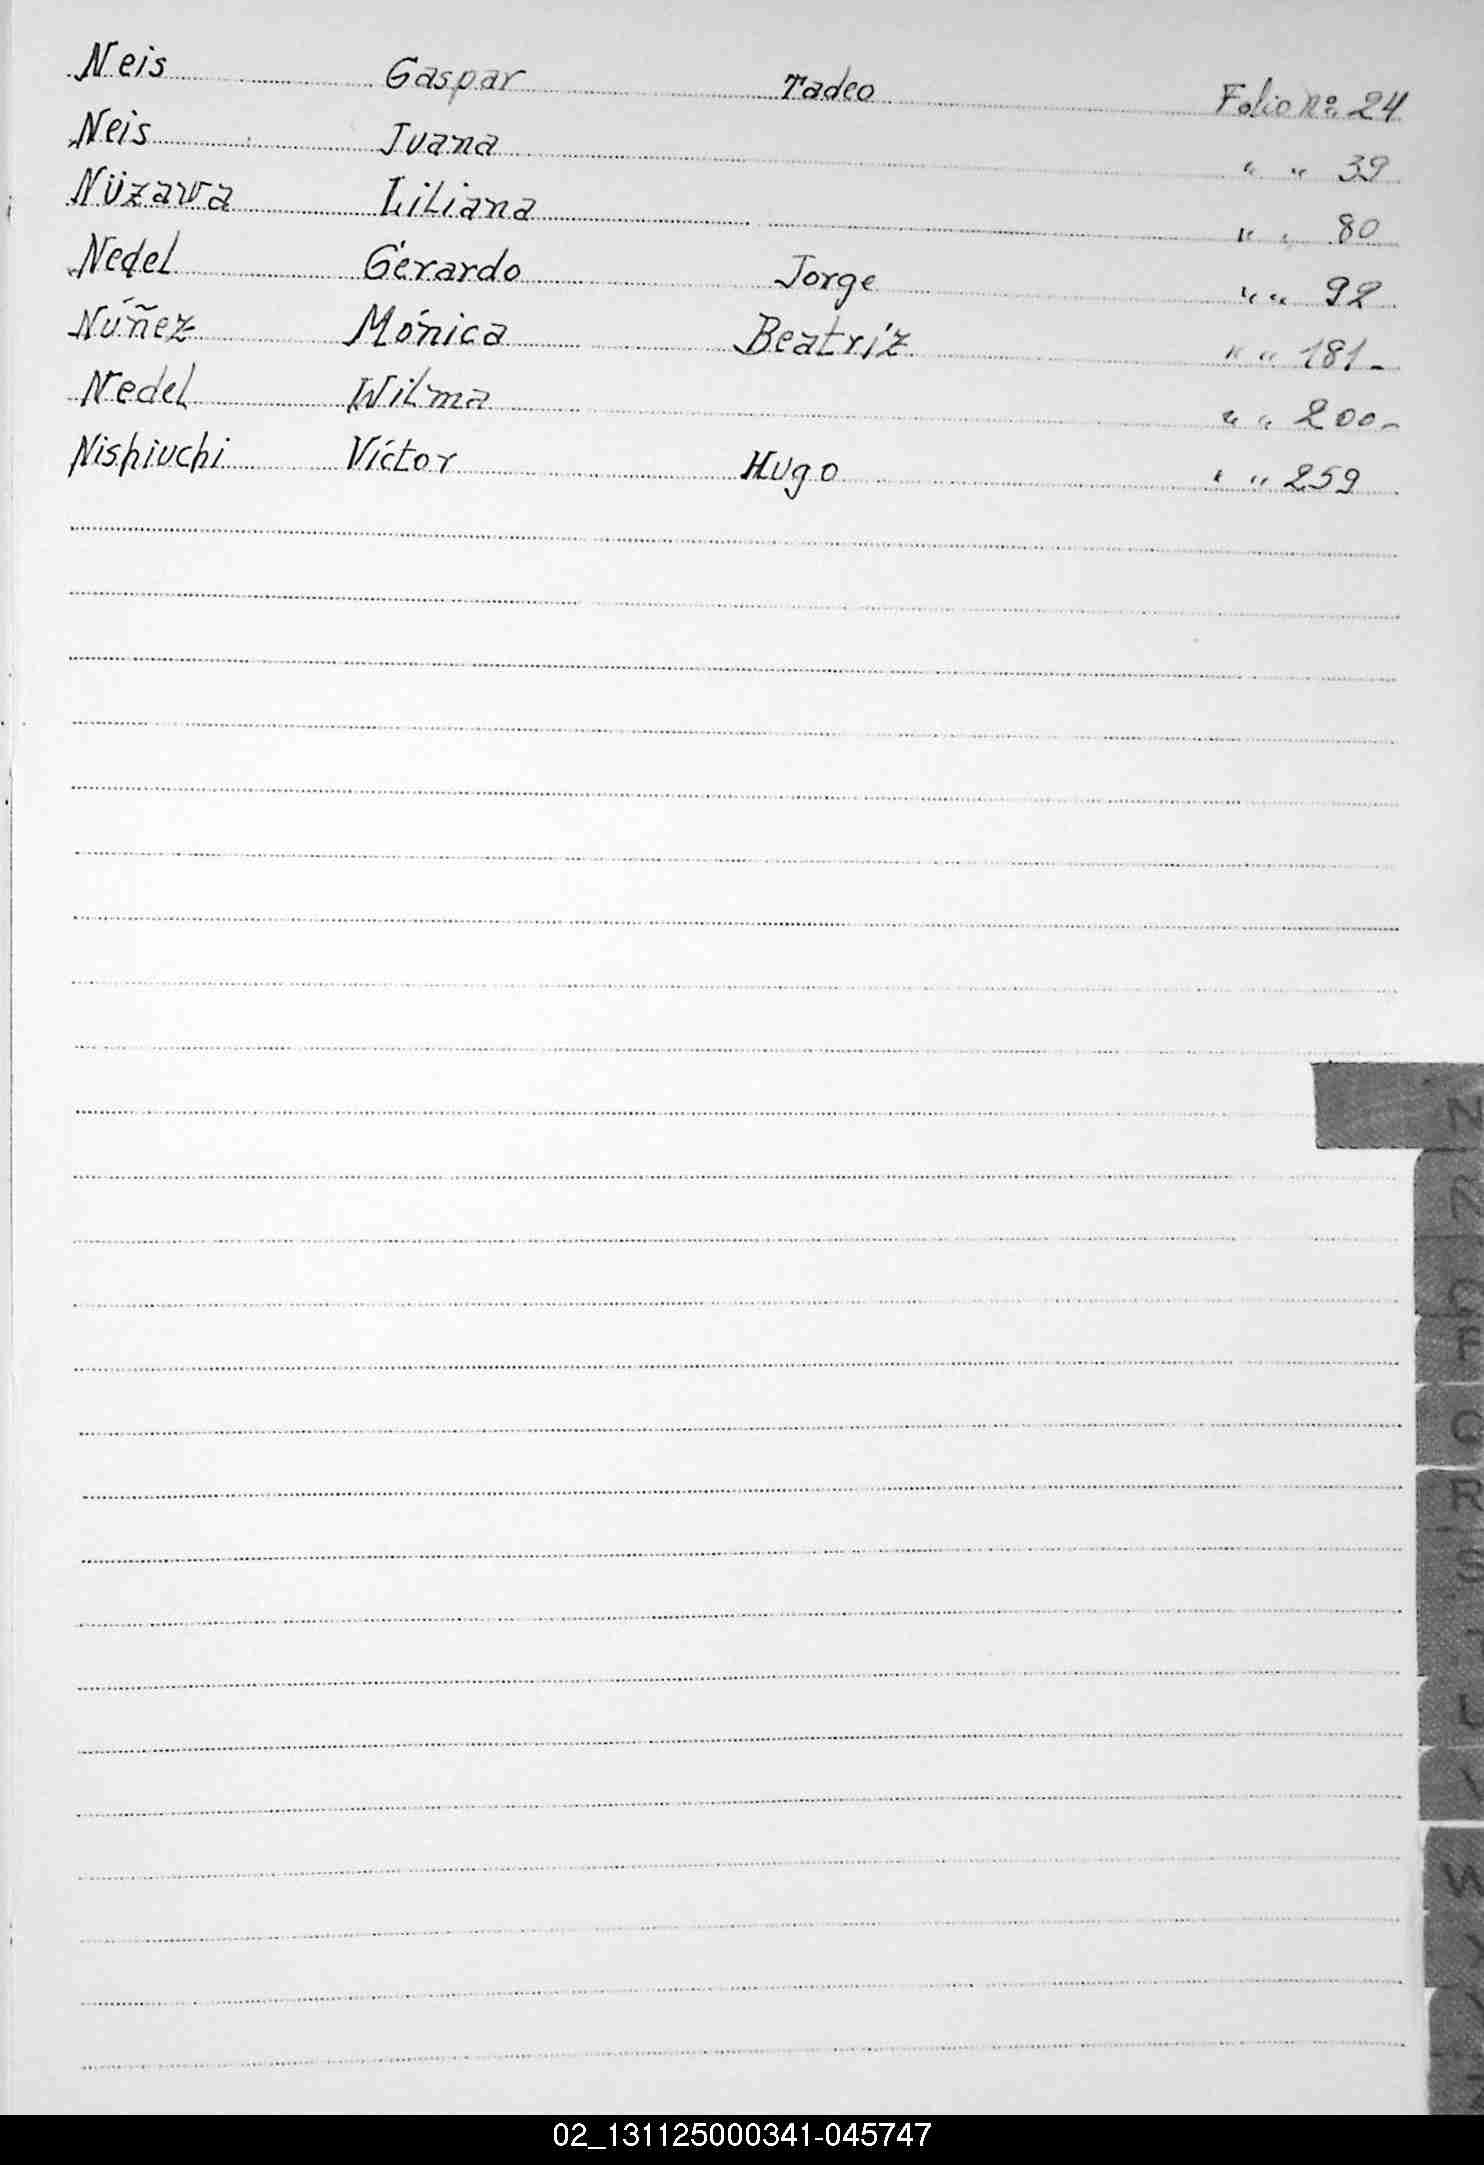 Neis Gaspar Tadeo Folio nº 24
Neis Juana " " 39
Nüzawa Liliana " " 80
Nedel Gerardo Jorge " " 92
Núñez Mónica Beatríz " " 181-
Nedel Wilma " " 200-
Nishiuchi Víctor Hugo " " 259
N
Ñ
O
P
Q
R
S
T
U
V
W
02_131125000341-045747